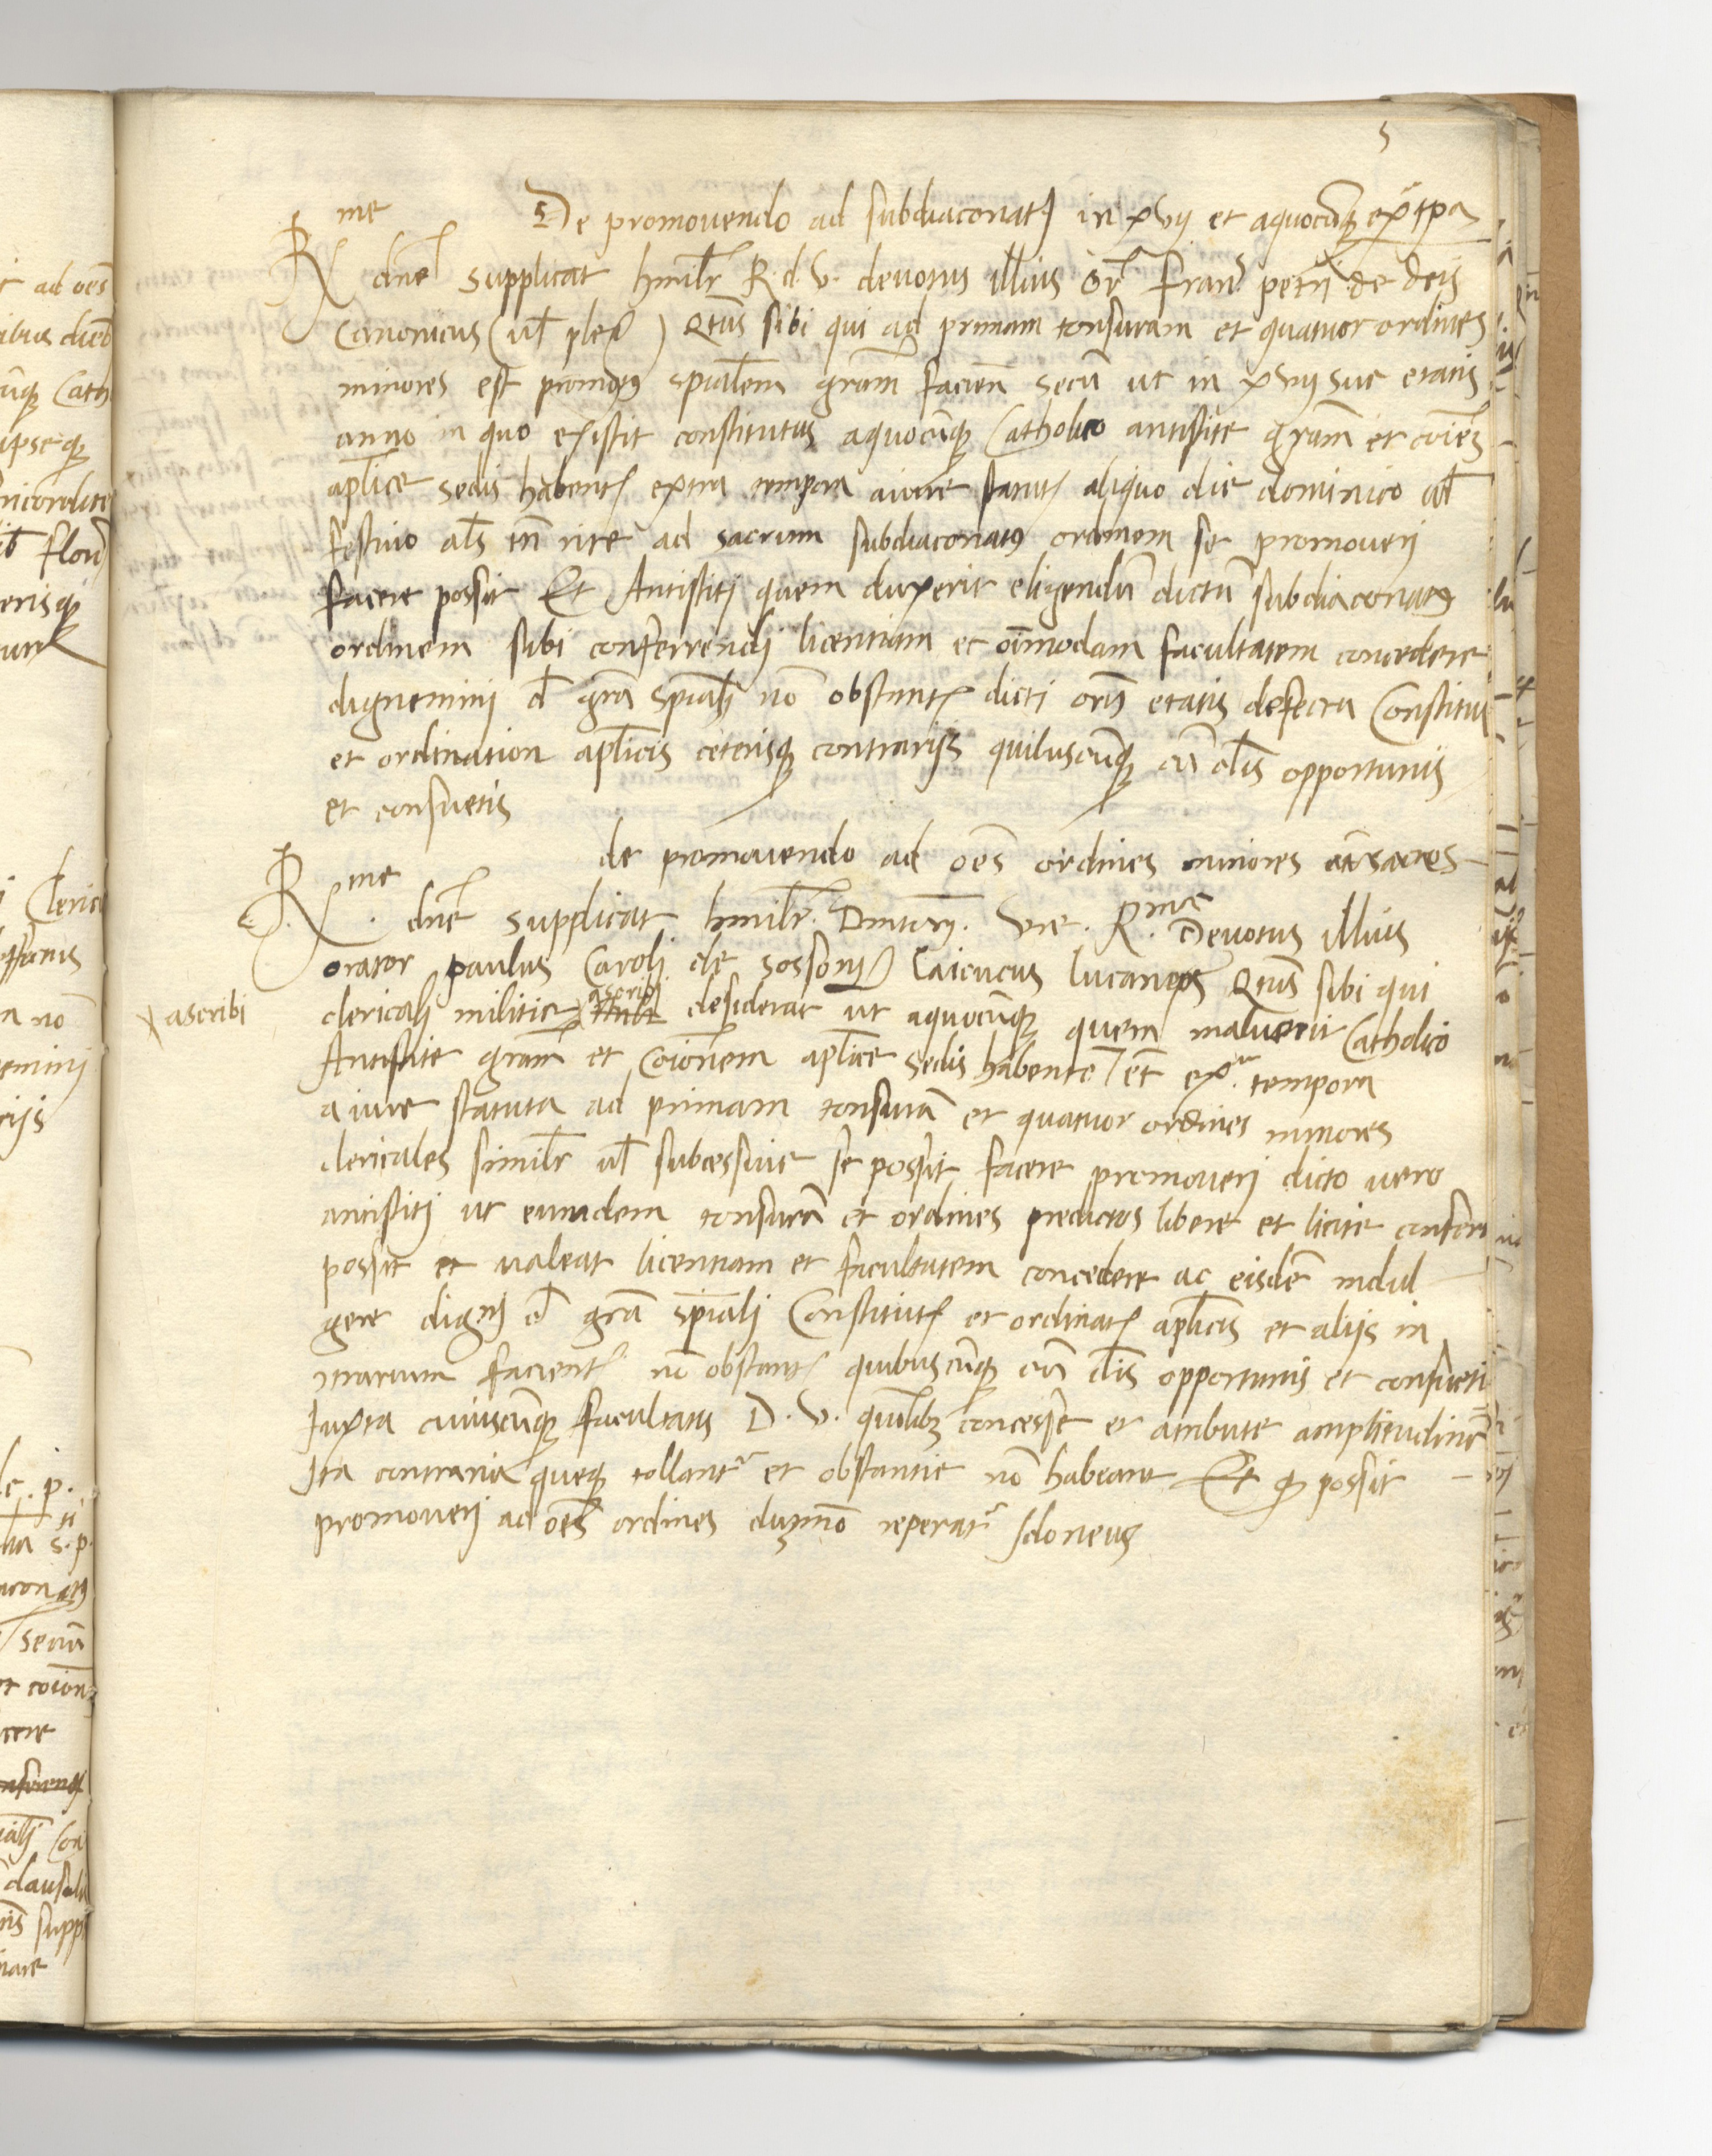 5
De promovendo ad subdiaconatꝰ in xvij et aquocūqꝫ ext̃ tpa
R me dn̄e supplicat hmilr̃ R. d. v. devotus illius or̃ Fran. petri de deis
Canonicus (vl̃ pleb) Qt̃us sibi qui ad primam tonsuram et quatuor ordines
minores est promotꝰ spialem gram̄ facien secū ut in xvij sue etatis
anno in quo existit constitutus aquocūqꝫ Catholico antistite gram̄ et coiēz
aplice sedis habent extra tempora aiure statut aliquo die dominico vl̃
festivo als tn̄ rite ad sacrum subdiaconatꝰ ordinem se promoveri
facere possit Et Antistiti quem duxerit eligendū dictū subdiaconatꝰ
ordinem sibi conferrendi licentiam et oīmodam facultatem concedere
dignemini d gr̄a sp̄iali nō obstant dicti oris etatis defectu Constitu
et ordination aplicis ceterisqꝫ contrarijs quibuscūqꝫ cū clis opportunis
et consuetis
de promovendo ad oēs ordines minores et sacros
R me dn̄e supplicat hmilr̃ Dn̄t̄ni. Vre. R.me Devotus illius
orator paulus Caroli de sossoni Laicucus lucanus Qt̃us sibi qui
x ascribi
clericali militie ascribi desiderat ut aquocūqꝫ quem maluerit Catholico
Antistite gram̄ et Coiōnem aplice sedis habente et̄ ex.a tempora
a iure statuta ad primam tonsurā et quatuor ordines minores
clericales similr̃ vl̃ subcessive se possit facere promoveri dicto vero
antistiti ut eumdem tonsurā et ordines predictos libere et licite conferr
possit et valeat licentiam et facultatem concedere ac eisdē indul
gere digni d gr̄a sp̄iali Constitut et ordinat aplicis et alijs in
ꝯtrarium facient nō obstant quibuscūqꝫ cū clis opportunis et consueti
Iuxta cuiuscūqꝫ facultatis D. V. quōlibꝫ concesse et atribute amplitudinē
Ita contraria queqꝫ tollantr et obstantie nō habeant Et ꝙ possit
promoveri ad oēs ordines dum̄mō reperatr Idoneus